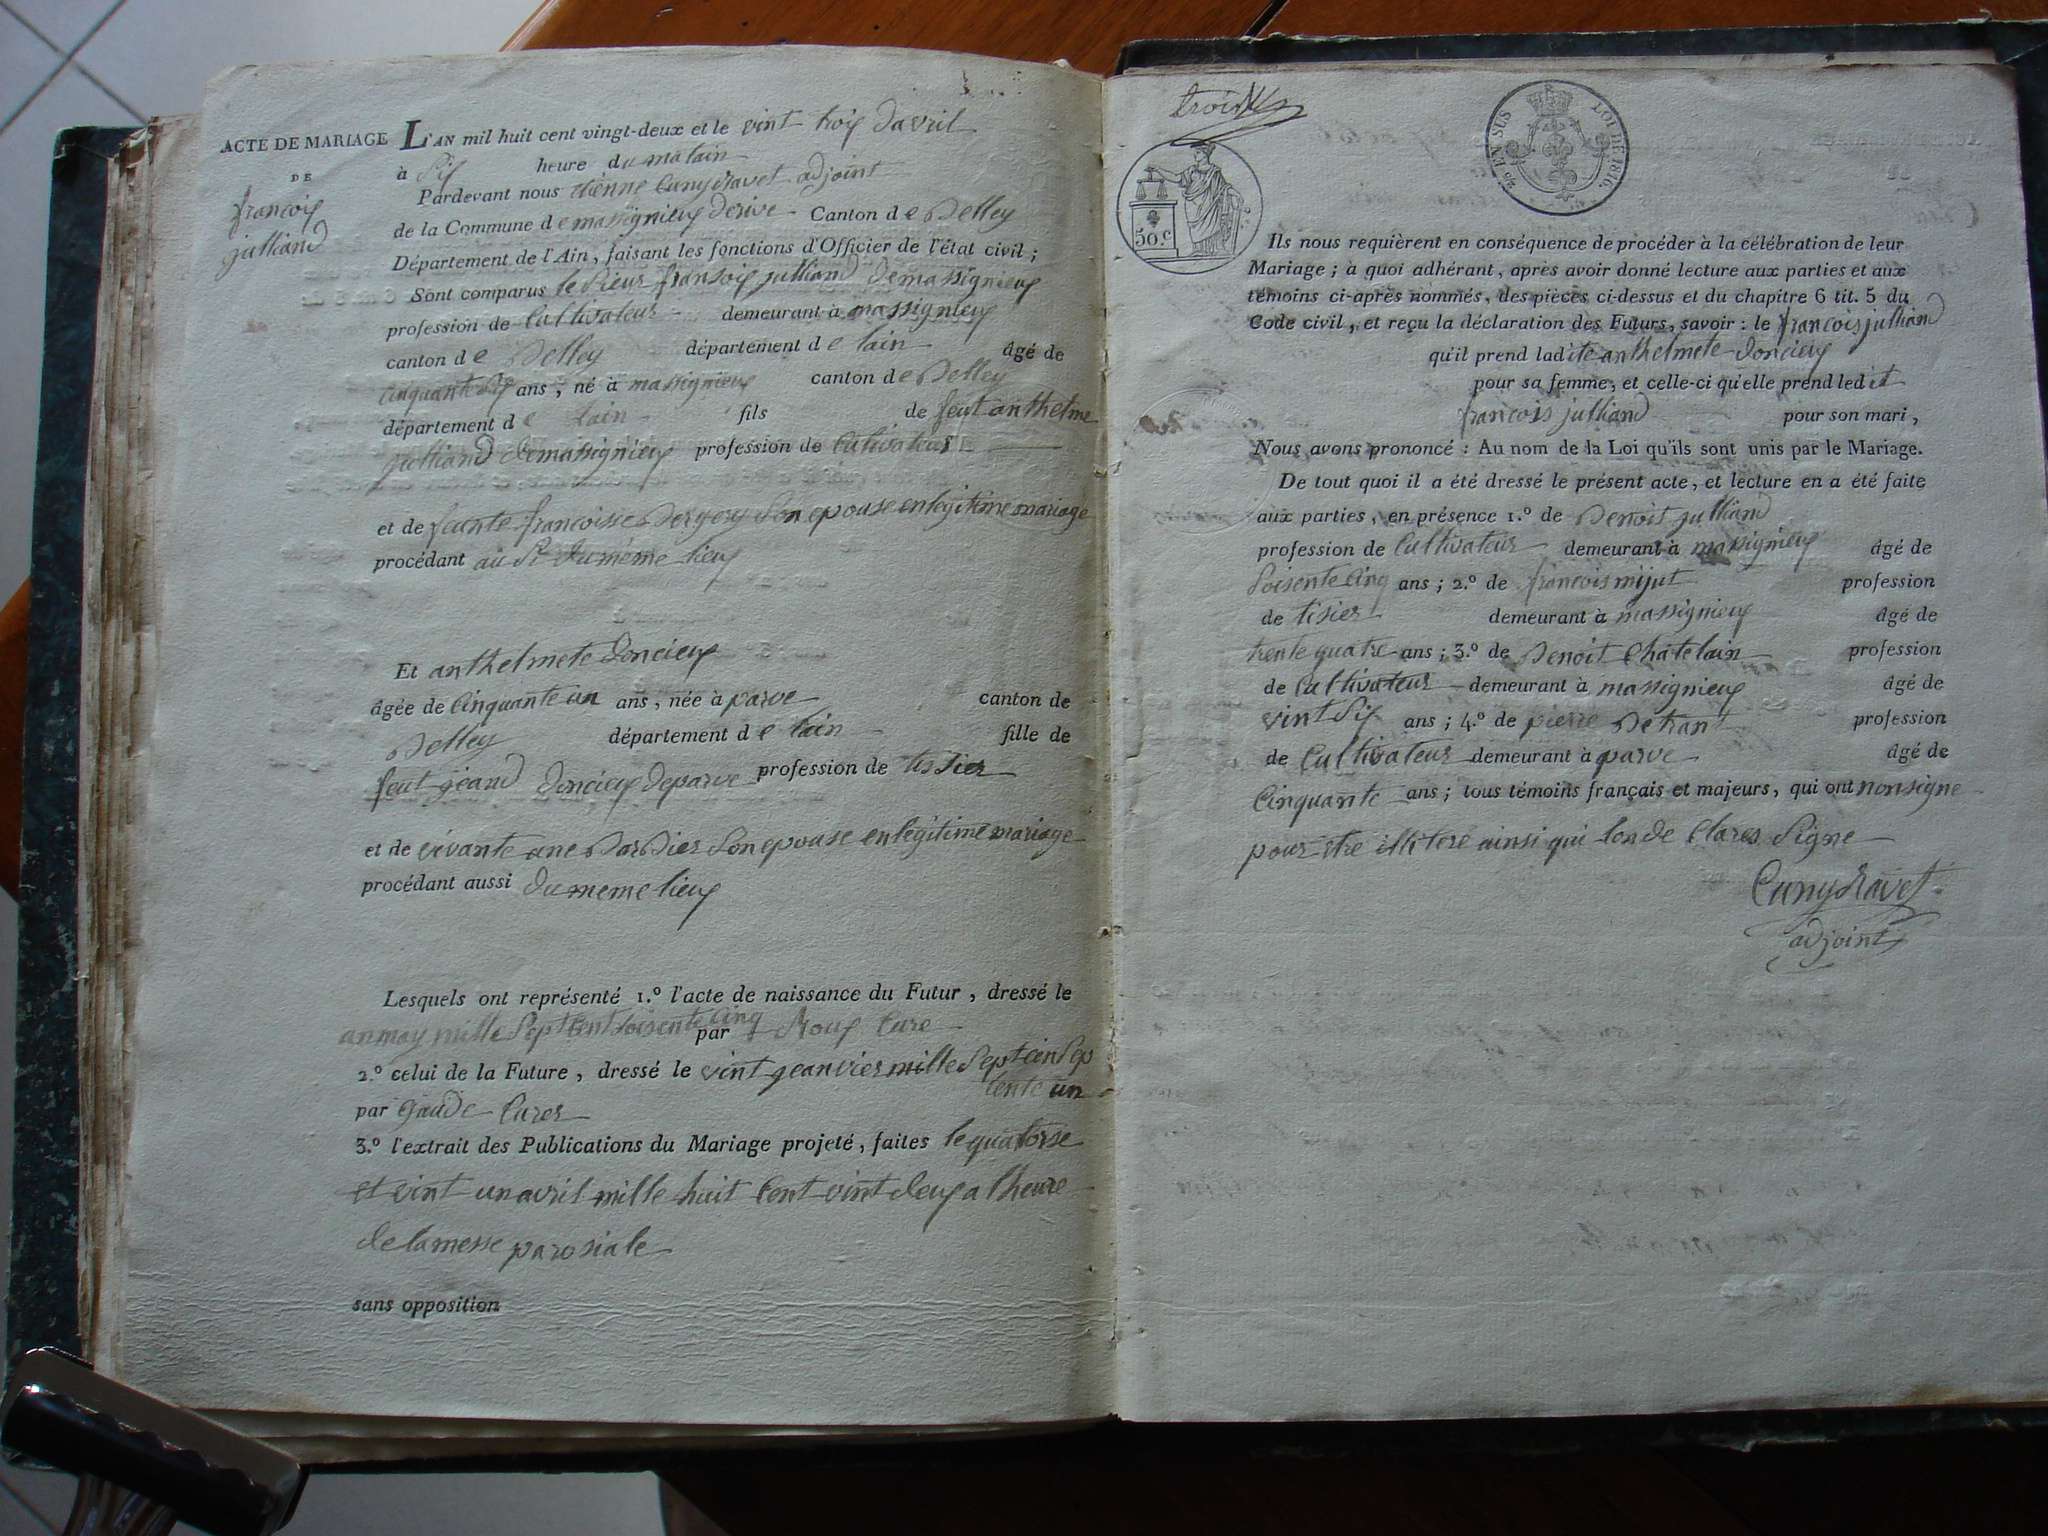 ACTE DE MARIAGE L'AN mil huit cent vingt-deux et le vint troix davril
DE
francoix
julliand
à Six heure du matain
Pardevant nous etienne Cunydravet adjoint
de la Commune de massignieux derive Canton de Belley
Département de l'Ain, faisant les fonctions d'Officier de l'état civil;
Sont comparus le Sieur fransoix julliand demassignieux
profession de Cultivateur demeurant à massignieux
canton de Belley département de lain âgé de
Cinquante six ans, né à massignieux canton de Belley
département de lain fils de feut anthelme
julliand demassignieux profession de Cultivateur
et de feunte francoisse Bergery Son epouse enlegitime mariage
procédant au dit dumême lieux
Et anthelmete doncieux
âgée de Cinquante un ans, née à parve canton de
Belley département de lain fille de
feut geand doncieux deparve profession de tissier
et de vivante ane Bardier Son epouse enlegitime mariage
procédant aussi du meme lieux
Lesquels ont représenté 1.º l'acte de naissance du Futur, dressé le
anmay mille Sept Cent soisente cinq par Roux Cure
2.º celui de la Future, dressé le vint geanvier mille Sept cen Sep
tente un
par gaude Curer
3.º l'extrait des Publications du Mariage projeté, faites le quatorse
et vint unavril mille huit Cent vint deux a lheure
de lamesse parosiale
sans opposition
troix
5/5 EN SUS LOI DE 1816.
50.c
Ils nous requièrent en conséquence de procéder à la célébration de leur
Mariage; à quoi adhérant, après avoir donné lecture aux parties et aux
témoins ci-après nommés, des pièces ci-dessus et du chapitre 6 tit. 5 du
Code civil, et reçu la déclaration des Futurs, savoir: le francois julliand
qu'il prend ladite anthelmete doncieux
pour sa femme, et celle-ci qu'elle prend ledit
francois julliand pour son mari,
Nous avons prononcé: Au nom de la Loi qu'ils sont unis par le Mariage.
De tout quoi il a été dressé le présent acte, et lecture en a été faite
aux parties, en présence 1.º de Benoit julliand
profession de Cultivateur demeurant à massignieux âgé de
Soisente Cinq ans; 2.º de francois mijut profession
de tisier demeurant à massignieux âgé de
trente quatre ans; 3.º de Benoit Chatelain profession
de Cultivateur demeurant à massignieux âgé de
vint Six ans; 4.º de pierre Betrant profession
de Cultivateur demeurant à parve âgé de
Cinquante ans; tous témoins français et majeurs, qui ont nonsigne
pour etre illitere ainsi qui lon de Clares Signe
Cunydravet
adjoint